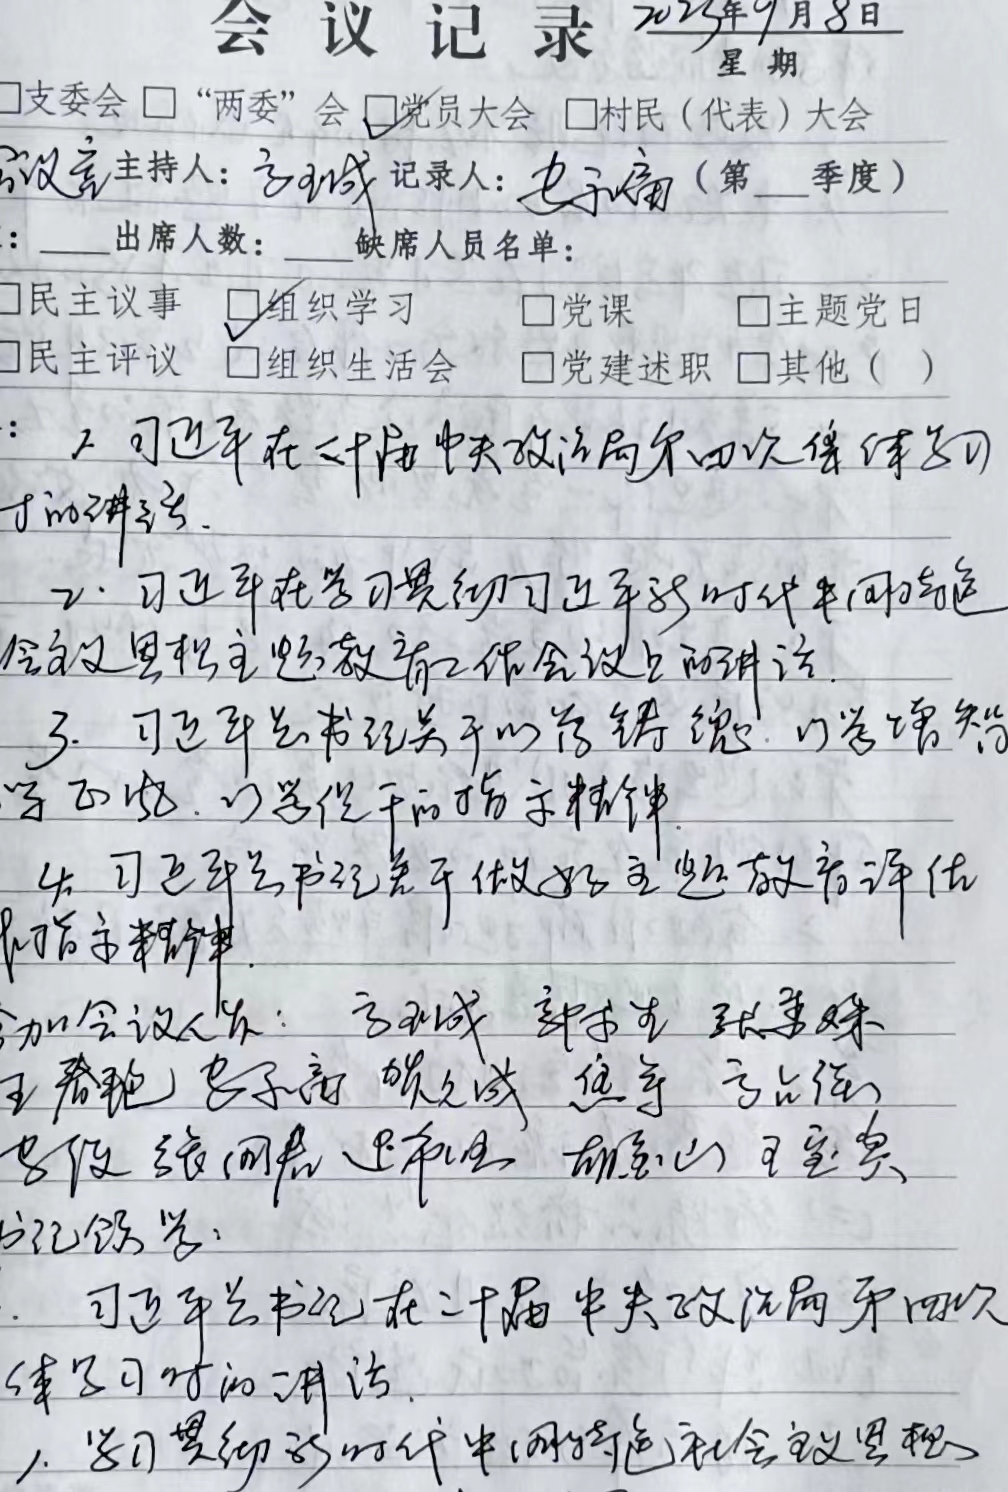 会议记录 2023年9月8日
星期
□支委会 □“两委”会 □党员大会 □村民（代表）大会
会议室 主持人： 记录人： （第___季度）
：___出席人数：___缺席人员名单：
□民主议事 □组织学习 □党课 □主题党日
□民主评议 □组织生活会 □党建述职 □其他（ ）
： 1. 习近平在二十届中央政治局第四次集体学习
时的讲话.
2. 习近平在学习贯彻习近平新时代中国特色
会主义思想主题教育工作会议上的讲话.
3. 习近平总书记关于以学铸魂. 以学增智
学正风. 以学促干的指示精神.
4. 习近平总书记关于做好主题教育评估
的指示精神.
参加会议人员：
张国君 胡宝山
书记领学：
. 习近平总书记在二十届中央政治局第四次
体学习时的讲话.
1. 学习贯彻新时代中国特色社会主义思想